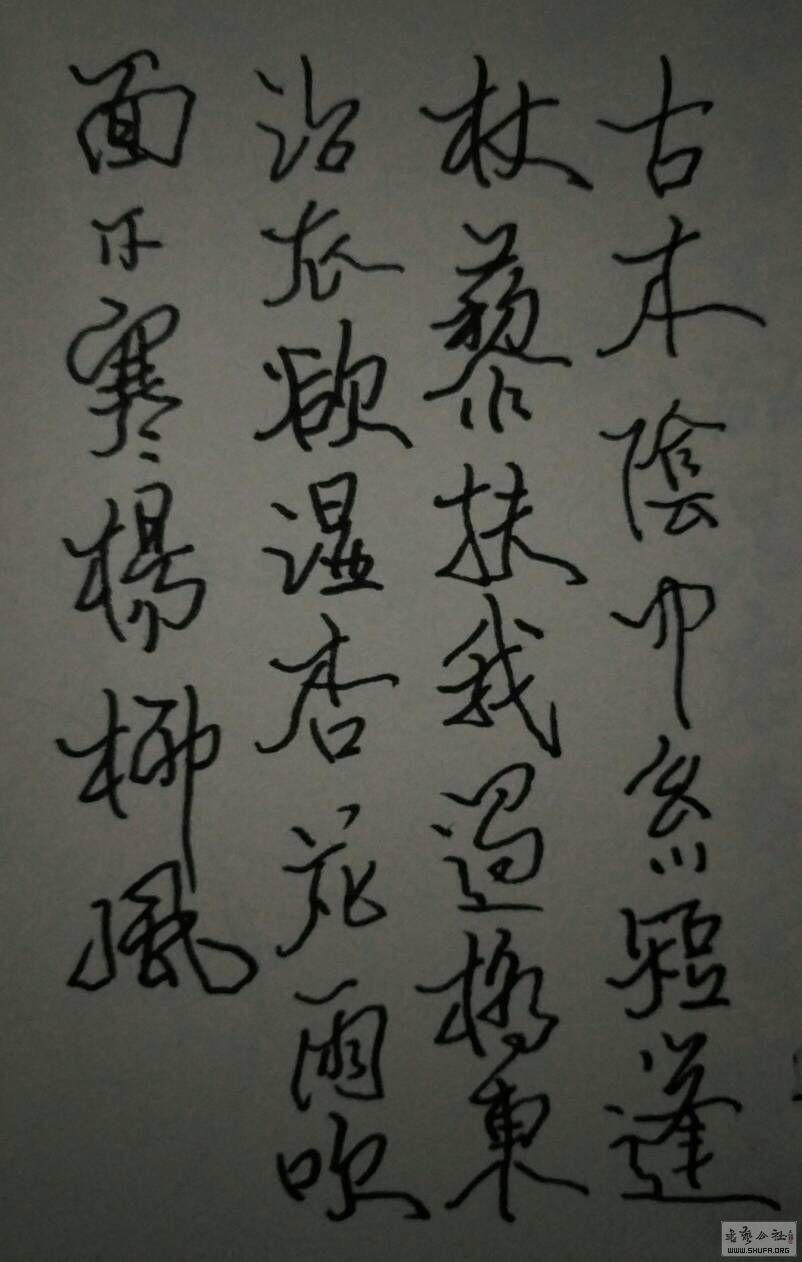 古木陰中系短蓬
杖藜扶我過橋東
沾衣欲濕杏花雨吹
面不寒楊柳風
WWW.SHUFA.ORG